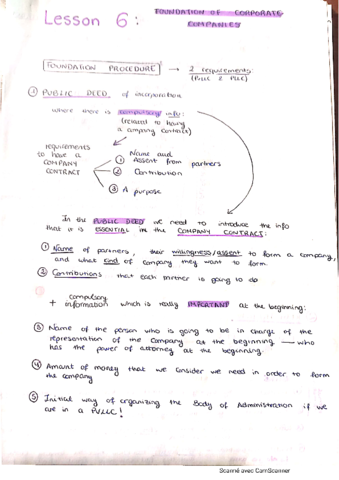 Lesson 6:
FOUNDATION OF CORPORATE
COMPANIES
FOUNDATION PROCEDURE → 2 requirements:
① PUBLIC DEED of incorporation
where there is compulsory info:
(related to having
a company contract)
requirements
to have a
COMPANY
CONTRACT
① Name and
Assent from partners
② Contribution
③ A purpose
In the PUBLIC DEED we need to introduce the info
that is ESSENTIAL in the COMPANY CONTRACT:
① Name of partners, their willingness/assent to form a company,
and what kind of company they want to form
② Contributions that each partner is going to do
+ compulsory
information which is really IMPORTANT at the beginning:
③ Name of the person who is going to be in charge of the
representation of the company at the beginning — who
has the power of attorney at the beginning.
④ Amount of money that we consider we need in order to form
the company
⑤ Initial way of organizing the Body of Administration if we
are in a PLLC!
Scanné avec CamScanner